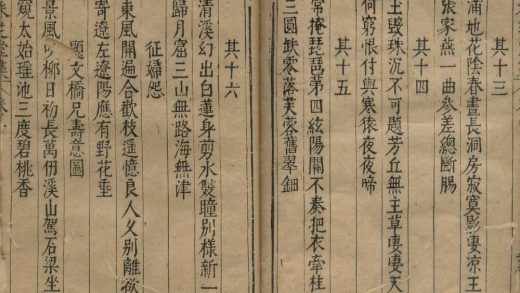 其十三
滿地花陰春晝長洞房寂寞影凄涼王
張家燕一曲參差總斷腸
其十四
玉毀珠沉不可題芳丘無主草凄凄天
何窮恨付與寒猿夜夜啼
其十五
常掩琵琶第四絃陽關不奏把衣牽柱
三圓缺零落芙蓉舊翠鈿
其十六
清溪幻出白蓮身剪水雙瞳別樣新一
歸月窟三山無路海無津
征婦怨
東風開遍合歡枝遥憶良人又別離欲
寄遼左遼陽應有野花垂
題文橋兄壽意圖
景風吹柳日初長萬仞溪山駕石梁坐
窺太始瑶池三度碧桃香